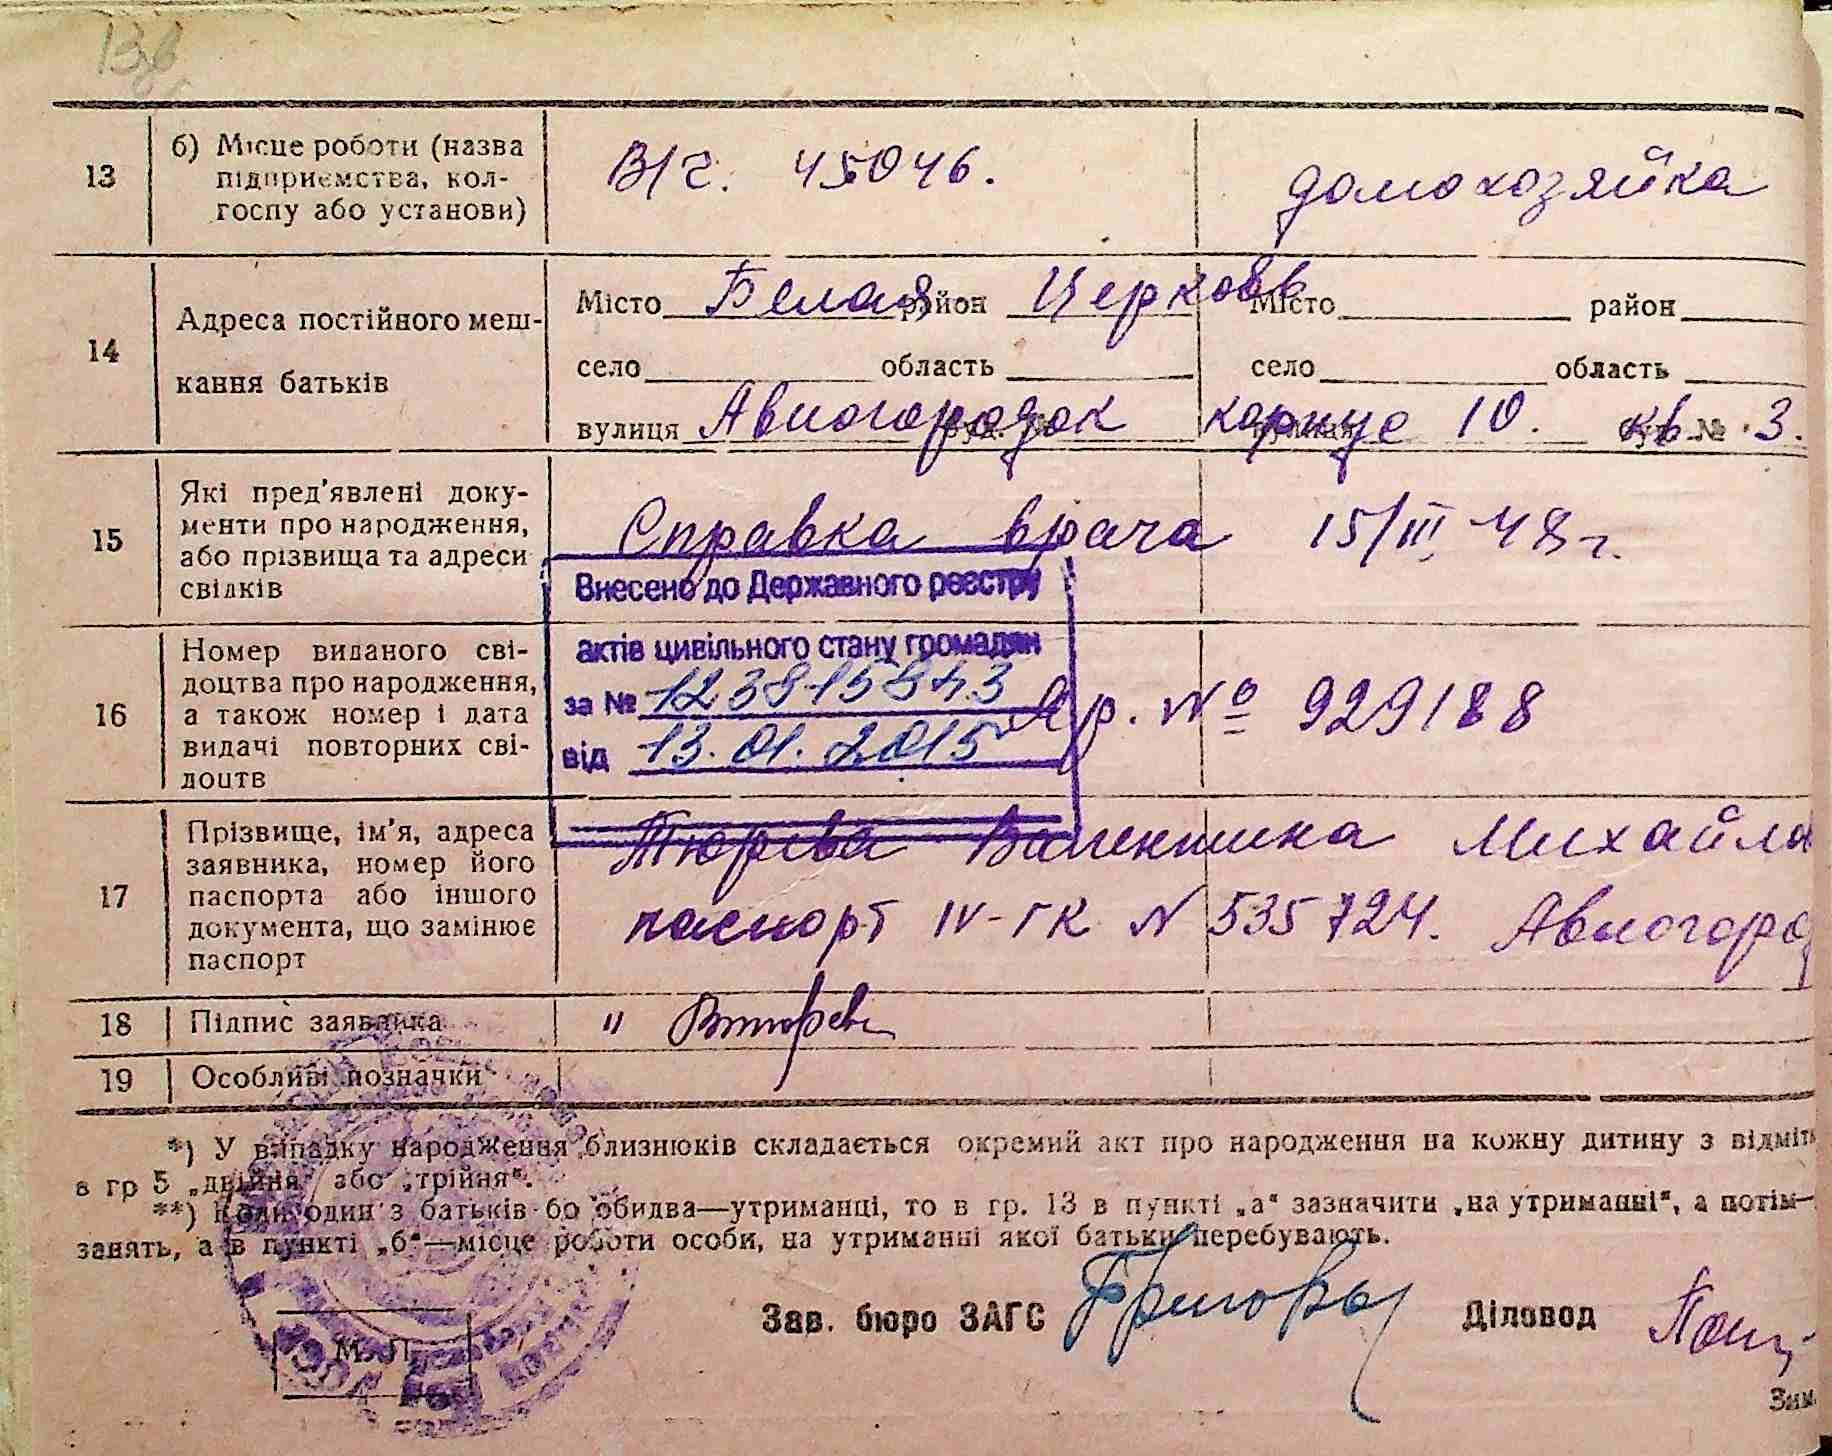 13 б) Місце роботи (назва підприємства, колгоспу або установи) В/г. 45046. домохозяйка
14 Адреса постійного мешкання батьків
Місто Белая район Церковь Місто район
село область село область
вулиця Авиогородок корпус 10. кв № 3.
15 Які пред'явлені документи про народження, або прізвища та адреси свідків Справка врача 15/III 48 г.
Внесено до Державного реєстру
актів цивільного стану громадян
за № 12381584.3
від 13.01.2015
16 Номер виданого свідоцтва про народження, а також номер і дата видачі повторних свідоцтв № 929188
17 Прізвище, ім'я, адреса заявника, номер його паспорта або іншого документа, що замінює паспорт
Тюрева Валентина Михайло
паспорт IV-ГК N 535724. Авиогород
18 Підпис заявника
19 Особливі позначки
*) У випадку народження близнюків складається окремий акт про народження на кожну дитину з відміт
в гр 5 „двійня" або „трійня".
**) Коли один з батьків бо обидва—утриманці, то в гр. 13 в пункті „а" зазначити „на утриманні", а потім—
занять, а в пункті „б"—місце роботи особи, на утриманні якої батьки перебувають.
Зав. бюро ЗАГС Діловод
М. П.
Зим